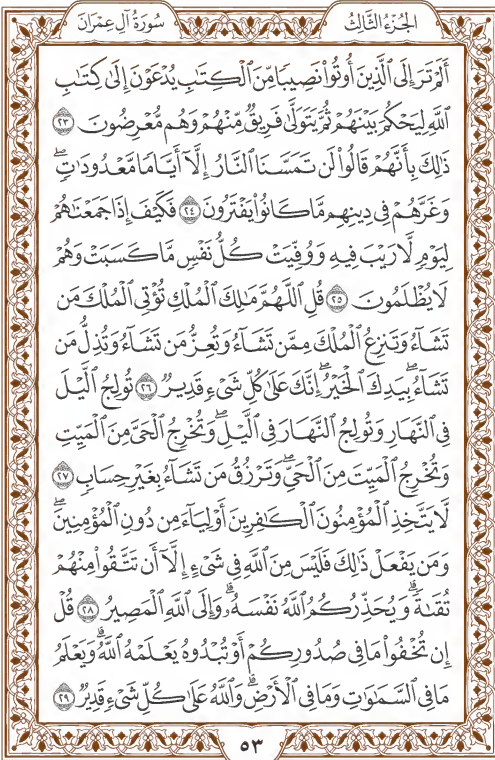 سُورَةُ آلِ عِمْرَانَ
الجُزْءُ الثَّالِثُ
أَلَمْ تَرَ إِلَى ٱلَّذِينَ أُوتُوا۟ نَصِيبًا مِّنَ ٱلْكِتَـٰبِ يُدْعَوْنَ إِلَىٰ كِتَـٰبِ
ٱللَّهِ لِيَحْكُمَ بَيْنَهُمْ ثُمَّ يَتَوَلَّىٰ فَرِيقٌ مِّنْهُمْ وَهُم مُّعْرِضُونَ ٢٣
ذَٰلِكَ بِأَنَّهُمْ قَالُوا۟ لَن تَمَسَّنَا ٱلنَّارُ إِلَّآ أَيَّامًا مَّعْدُودَٰتٍ ۖ
وَغَرَّهُمْ فِى دِينِهِم مَّا كَانُوا۟ يَفْتَرُونَ ٢٤ فَكَيْفَ إِذَا جَمَعْنَـٰهُمْ
لِيَوْمٍ لَّا رَيْبَ فِيهِ وَوُفِّيَتْ كُلُّ نَفْسٍ مَّا كَسَبَتْ وَهُمْ
لَا يُظْلَمُونَ ٢٥ قُلِ ٱللَّهُمَّ مَـٰلِكَ ٱلْمُلْكِ تُؤْتِى ٱلْمُلْكَ مَن
تَشَآءُ وَتَنزِعُ ٱلْمُلْكَ مِمَّن تَشَآءُ وَتُعِزُّ مَن تَشَآءُ وَتُذِلُّ مَن
تَشَآءُ ۖ بِيَدِكَ ٱلْخَيْرُ ۖ إِنَّكَ عَلَىٰ كُلِّ شَىْءٍ قَدِيرٌ ٢٦ تُولِجُ ٱلَّيْلَ
فِى ٱلنَّهَارِ وَتُولِجُ ٱلنَّهَارَ فِى ٱلَّيْلِ ۖ وَتُخْرِجُ ٱلْحَىَّ مِنَ ٱلْمَيِّتِ
وَتُخْرِجُ ٱلْمَيِّتَ مِنَ ٱلْحَىِّ ۖ وَتَرْزُقُ مَن تَشَآءُ بِغَيْرِ حِسَابٍ ٢٧
لَّا يَتَّخِذِ ٱلْمُؤْمِنُونَ ٱلْكَـٰفِرِينَ أَوْلِيَآءَ مِن دُونِ ٱلْمُؤْمِنِينَ ۖ
وَمَن يَفْعَلْ ذَٰلِكَ فَلَيْسَ مِنَ ٱللَّهِ فِى شَىْءٍ إِلَّآ أَن تَتَّقُوا۟ مِنْهُمْ
تُقَىٰةً ۗ وَيُحَذِّرُكُمُ ٱللَّهُ نَفْسَهُۥ ۗ وَإِلَى ٱللَّهِ ٱلْمَصِيرُ ٢٨ قُلْ
إِن تُخْفُوا۟ مَا فِى صُدُورِكُمْ أَوْ تُبْدُوهُ يَعْلَمْهُ ٱللَّهُ ۗ وَيَعْلَمُ
مَا فِى ٱلسَّمَـٰوَٰتِ وَمَا فِى ٱلْأَرْضِ ۗ وَٱللَّهُ عَلَىٰ كُلِّ شَىْءٍ قَدِيرٌ ٢٩
٥٣